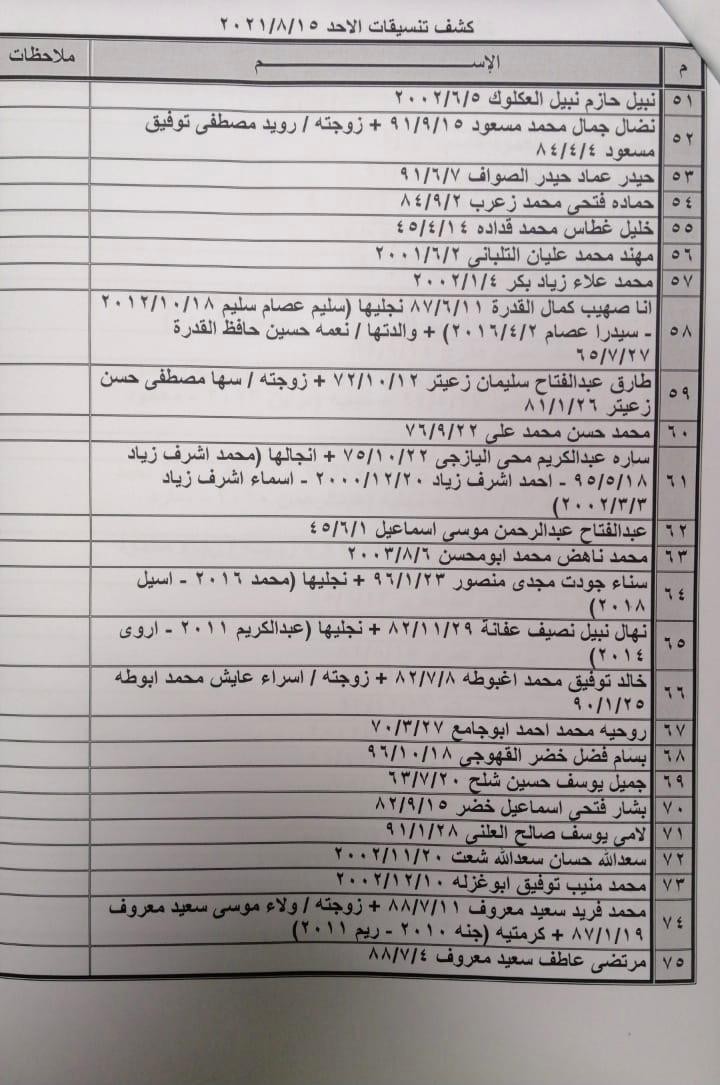 كشف تنسيقات الاحد ٢٠٢١/٨/١٥
م الإســـــــــــم ملاحظات
٥١ نبيل حازم نبيل العكلوك ٢٠٠٢/٦/٥
٥٢ نضال جمال محمد مسعود ٩١/٩/١٥ + زوجته / رويد مصطفى توفيق
مسعود ٨٤/٤/٤
٥٣ حيدر عماد حيدر الصواف ٩١/٦/٧
٥٤ حماده فتحى محمد زعرب ٨٤/٩/٢
٥٥ خليل غطاس محمد قداده ٤٥/٤/١٤
٥٦ مهند محمد عليان التلبانى ٢٠٠١/٦/٢
٥٧ محمد علاء زياد بكر ٢٠٠٢/١/٤
٥٨ انا صهيب كمال القدرة ٨٧/٦/١١ نجليها (سليم عصام سليم ٢٠١٢/١٠/١٨
- سيدرا عصام ٢٠١٦/٤/٢) + والدتها / نعمه حسين حافظ القدرة
٦٥/٧/٢٧
٥٩ طارق عبدالفتاح سليمان زعيتر ٧٢/١٠/١٢ + زوجته / سها مصطفى حسن
زعيتر ٨١/١/٢٦
٦٠ محمد حسن محمد على ٧٦/٩/٢٢
٦١ ساره عبدالكريم محى اليازجى ٧٥/١٠/٢٢ + انجالها (محمد اشرف زياد
٩٥/٥/١٨ - احمد اشرف زياد ٢٠٠٠/١٢/٢٠ - اسماء اشرف زياد
٢٠٠٢/٣/٣)
٦٢ عبدالفتاح عبدالرحمن موسى اسماعيل ٤٥/٦/١
٦٣ محمد ناهض محمد ابومحسن ٢٠٠٣/٨/٦
٦٤ سناء جودت مجدى منصور ٩٦/١/٢٣ + نجليها (محمد ٢٠١٦ - اسيل
٢٠١٨)
٦٥ نهال نبيل نصيف عفانة ٨٢/١١/٢٩ + نجليها (عبدالكريم ٢٠١١ - اروى
٢٠١٤)
٦٦ خالد توفيق محمد اغبوطه ٨٢/٧/٨ + زوجته / اسراء عايش محمد ابوطه
٩٠/١/٢٥
٦٧ روحيه محمد احمد ابوجامع ٧٠/٣/٢٧
٦٨ بسام فضل خضر القهوجي ٩٦/١٠/١٨
٦٩ جميل يوسف حسين شلح ٦٣/٧/٢٠
٧٠ بشار فتحى اسماعيل خضر ٨٢/٩/١٥
٧١ لامى يوسف صالح العلنى ٩١/١/٢٨
٧٢ سعدالله حسان سعدالله شعت ٢٠٠٢/١١/٢٠
٧٣ محمد منيب توفيق ابوغزله ٢٠٠٢/١٢/١٠
٧٤ محمد فريد سعيد معروف ٨٨/٧/١١ + زوجته / ولاء موسى سعيد معروف
٨٧/١/١٩ + كرمتيه (جنه ٢٠١٠ - ريم ٢٠١١)
٧٥ مرتضى عاطف سعيد معروف ٨٨/٧/٤